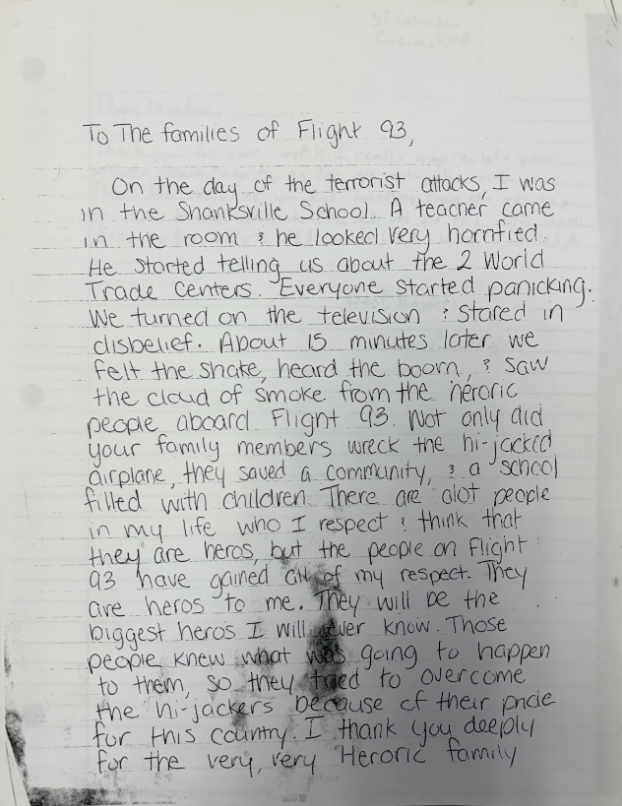 To The families of Flight 93,
On the day of the terrorist attacks, I was
in the Shanksville School. A teacher came
in the room & he looked very horrified.
He started telling us about the 2 World
Trade Centers. Everyone started panicking.
We turned on the television & stared in
disbelief. About 15 minutes later we
felt the shake, heard the boom, & saw
the cloud of smoke from the heroric
people aboard Flight 93. Not only did
your family members wreck the hi-jacked
airplane, they saved a community, & a school
filled with children. There are alot people
in my life who I respect & think that
they are heros, but the people on flight
93 have gained all of my respect. They
are heros to me. They will be the
biggest heros I will ever know. Those
people knew what was going to happen
to them, so they tried to overcome
the hi-jackers because of their pride
for this country. I thank you deeply
for the very, very Heroric family